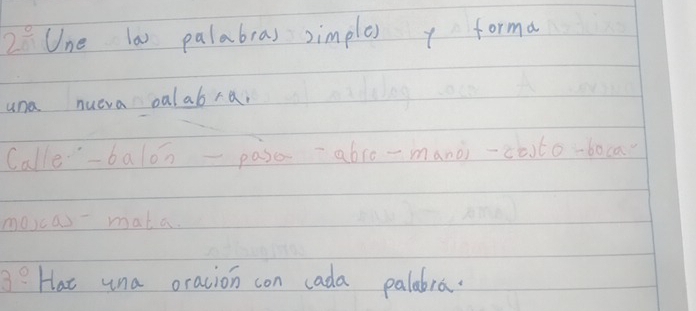 2º Une las palabras simples y forma
una nueva palabra.
Calle - balón - paso - abre - manos - cesto - boca -
moscas - mata.
3º Haz una oración con cada palabra.